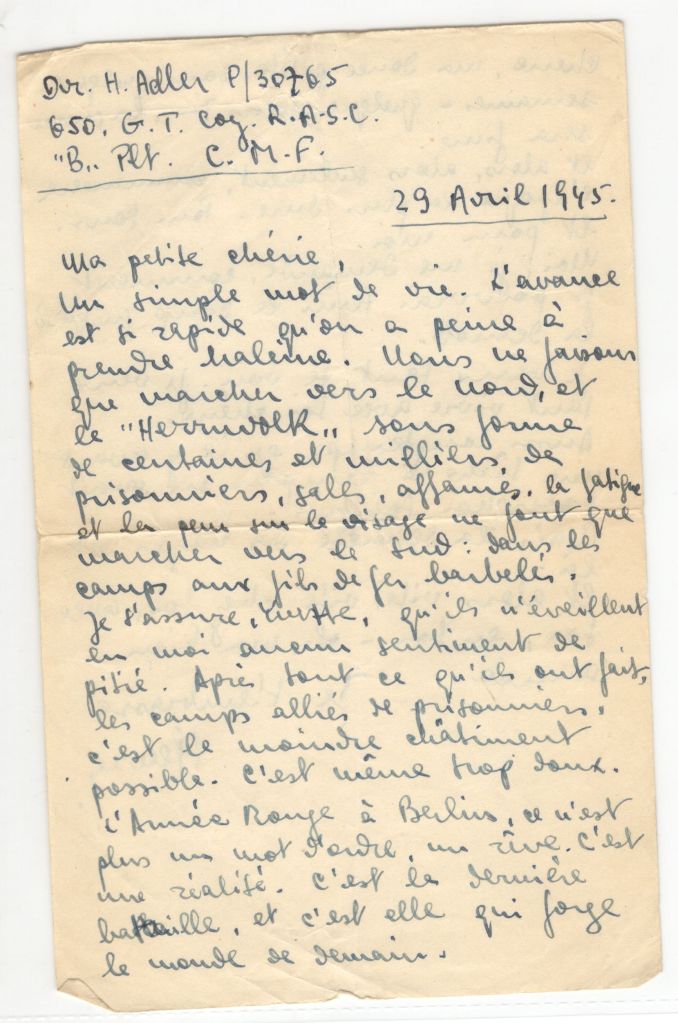 Dvr. H. Adler P/30765
650. G. T. Coy. R.A.S.C.
"B" Plt. C. M. F.
29 Avril 1945.
Ma petite chérie,
Un simple mot de vie. L'avance
est si rapide qu'on a peine à
prendre haleine. Nous ne faisons
que marcher vers le nord, et
le "Herrnvolk" sous forme
de centaines et milliers de
prisonniers, salles, affamés, la fatigue
et la peur sur le visage ne font que
marcher vers le Sud: dans les
camps aux fils de fer barbelés.
Je t'assure, qu'ils n'éveillent
en moi aucun sentiment de
pitié. Après tout ce qu'ils ont fait,
les camps alliés de prisonniers,
c'est le moindre châtiment
possible. C'est même trop doux.
L'Armée Rouge à Berlin, ce n'est
plus un mot d'ordre, un rêve. C'est
une réalité. C'est la dernière
bataille, et c'est elle qui forge
le monde de demain.